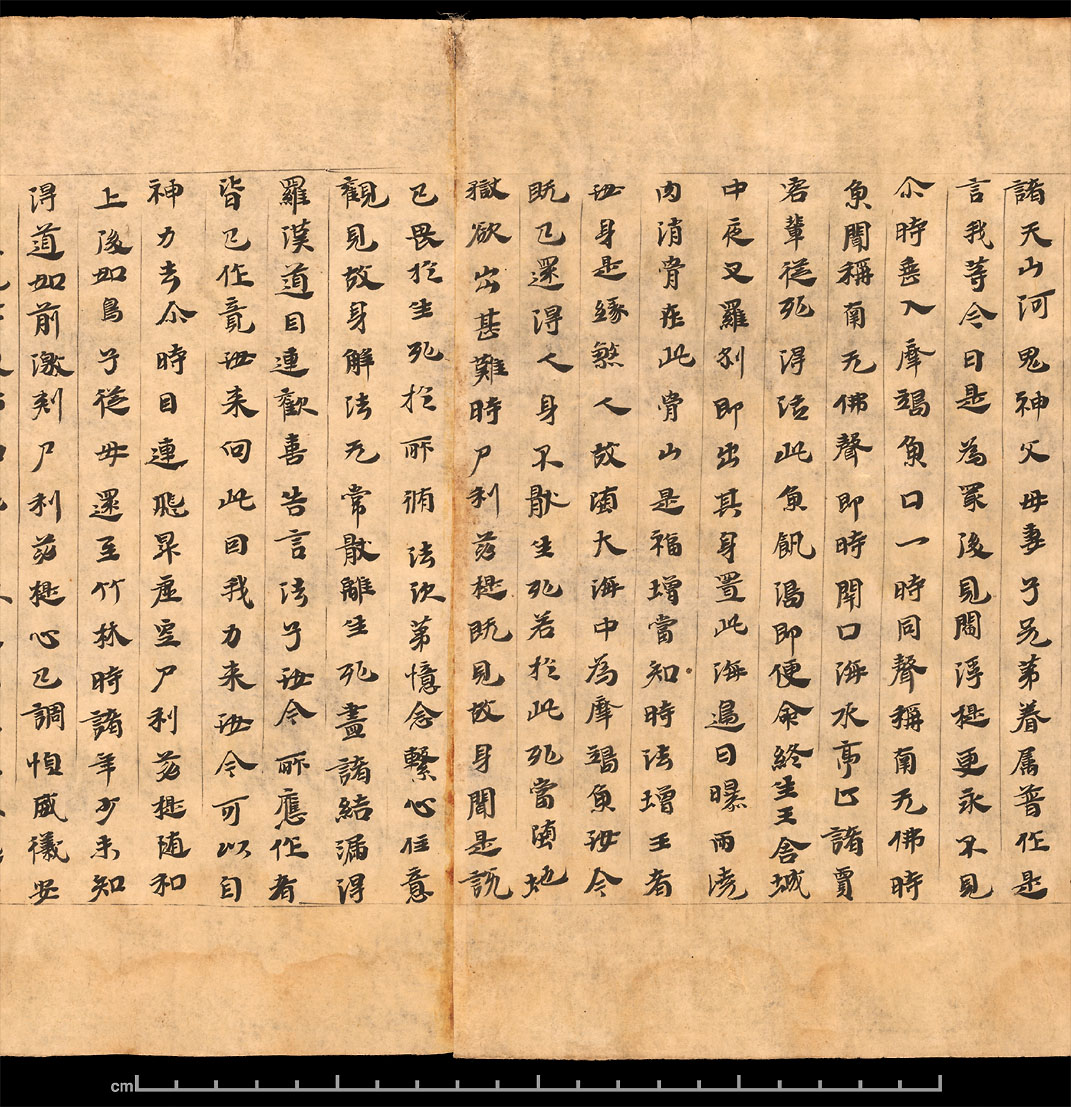 諸天山河鬼神父母妻子兄弟眷属普作是
言我等今日是為冣後見閻浮提更永不見
尒時垂入摩竭魚口一時同聲稱南无佛時
魚聞稱南无佛聲即時閇口海水亭止諸賈
客輩從死得活此魚飢渴即便命終生王舍城
中夜叉羅剎即出其身置此海邊日曝雨澆
肉消骨在此骨山是福增當知時法增王者
汝身是緣煞人故墮大海中為摩竭魚汝今
既已還得人身不猒生死若於此死當墮地
獄欲出甚難時尸利苾提既見故身聞是說
已畏於生死於所脩法次第憶念繫心住意
觀見故身解法无常猒離生死盡諸結漏得
羅漢道目連歡喜告言法子汝今所應作者
皆已作竟汝来向此因我力来汝今可以自
神力去尒時目連飛昇虛空尸利苾提随和
上後如鳥子從母還至竹林時諸年少未知
得道如前激刺尸利苾提心已調恒威儀安